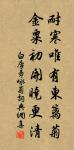 耐寒唯有東籬菊
金粟初開曉更清
白居易詠菊詞典網集